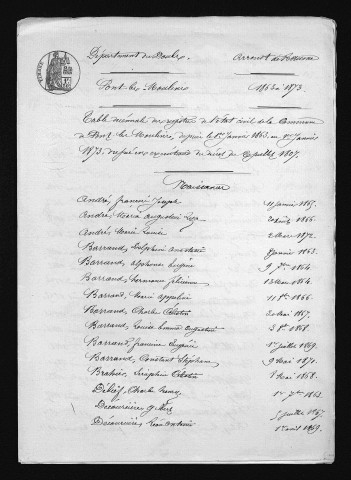 Département du Doubs
Arrondt de Besançon
Pont-les-Moulins
1863 à 1873.
Table décennale des registres de l'état civil de la Commune
de Pont les Moulins, depuis le 1er Janvier 1863 au 1er Janvier
1873, dressée en exécution du décret du 20 juillet 1807.
Naissances
André, François Joseph 11 janvier 1867.
André, Maria Augustine 20 août 1866.
André, Marie Louise 2 Mars 1872.
Barrand, Delphin 8 janvier 1863.
Barrand, Alphonse Eugène 9 7bre 1864.
Barrand, Hermance 13 Mars 1864.
Barrand, Marie Appoline 11 1866.
Barrand, Charles Célestin 30 Mai 1867.
Barrand, Louise 5 1868.
Barrand, Francine Eugénie 1er juillet 1869.
Barrand, Constant Stéphane 9 Mai 1870.
Séraphin Célestin 8 Mai 1868.
Charles 1er 7bre 1863.
Decourcière 5 juillet 1867.
Decourcière, Léon Antoine 1er août 1869.